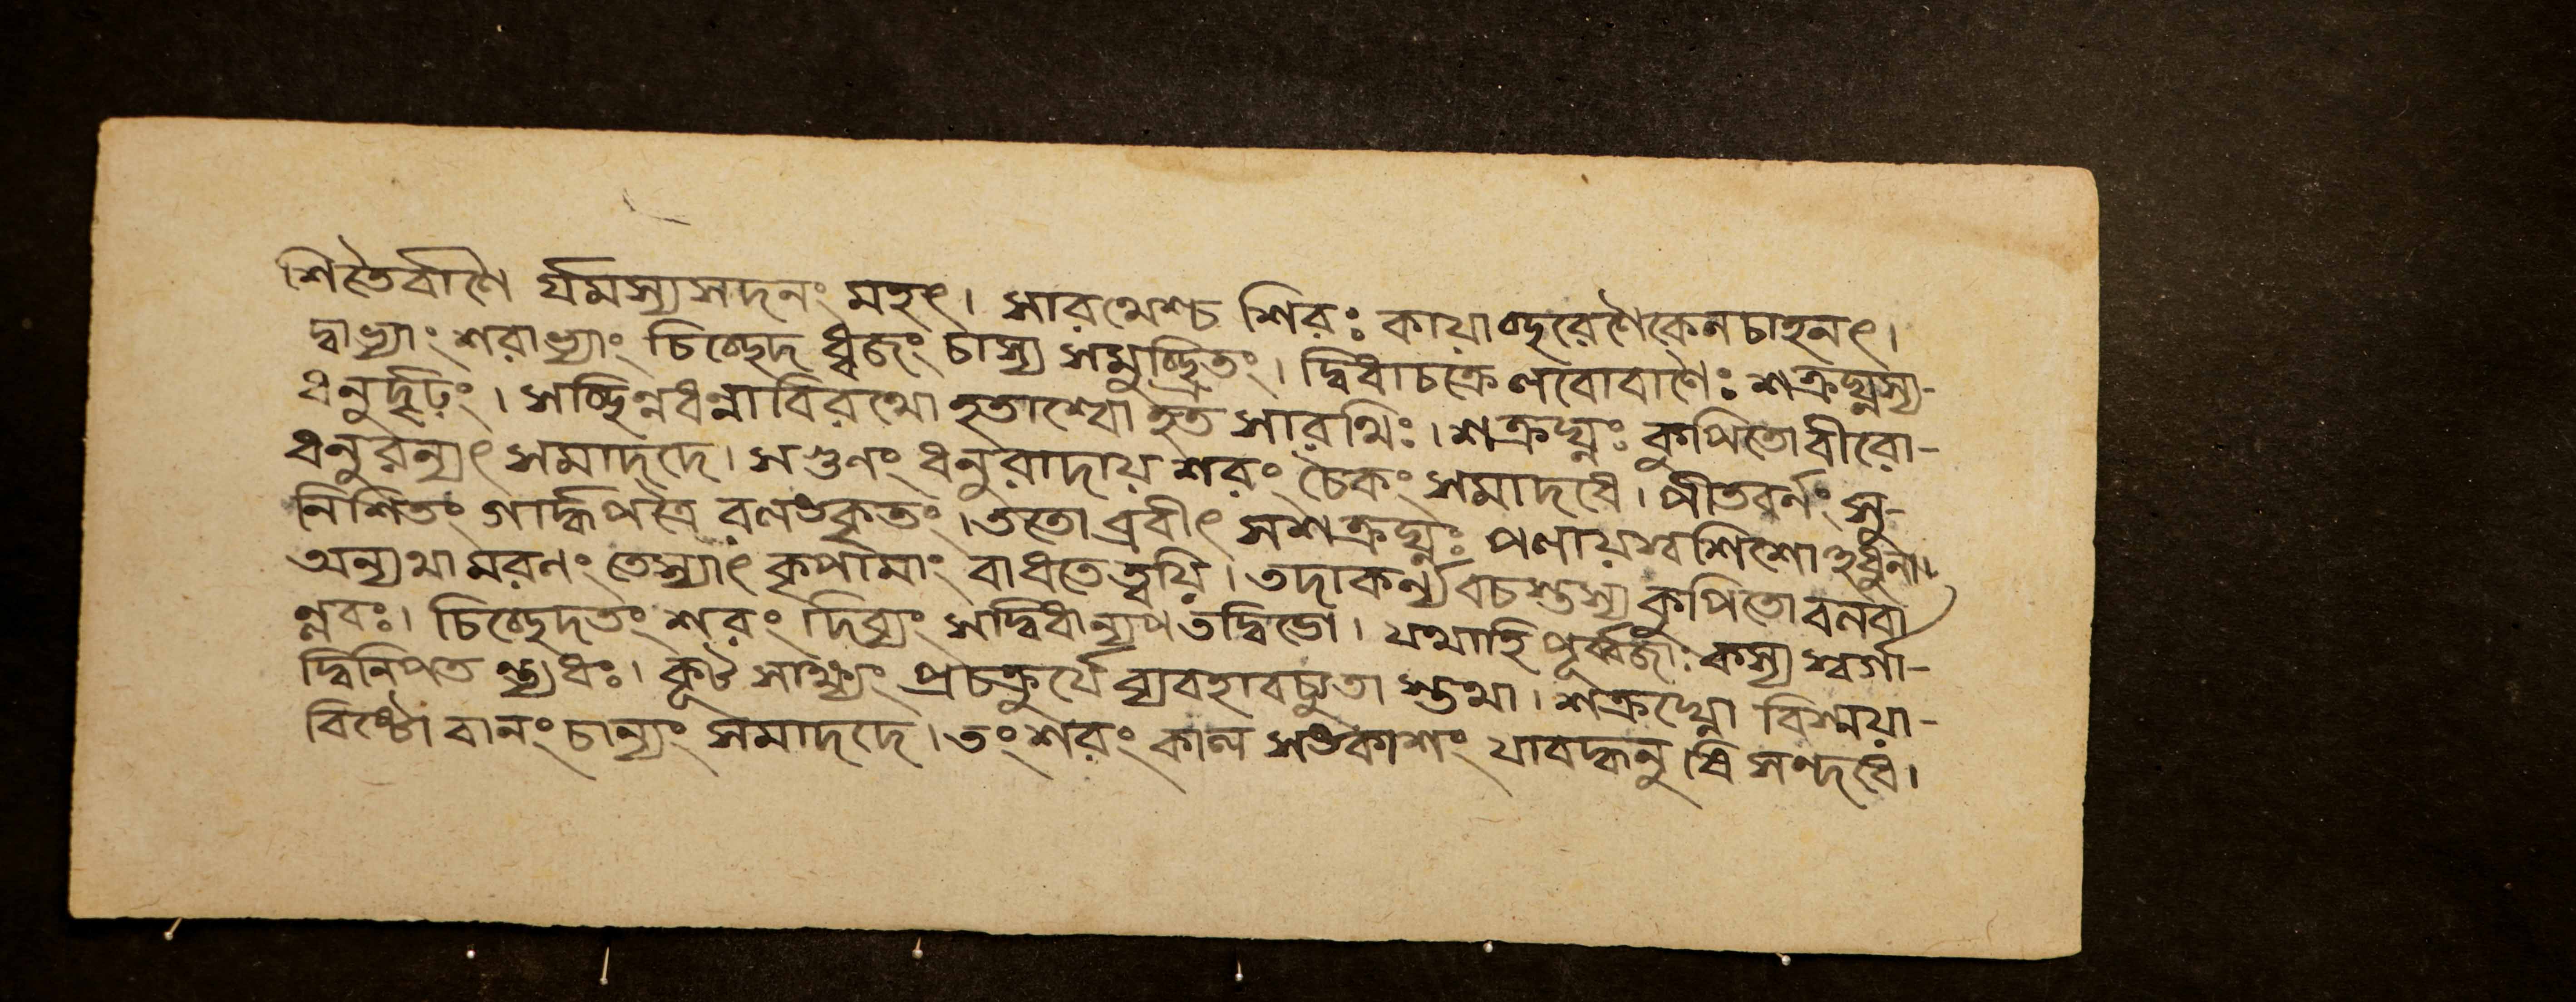 শিতৈর্বাণৈ র্যমস্যসদনং মহৎ। সারথেশ্চ শিরঃ কায়াচ্ছরেণৈকেনচাহনৎ।
দ্বাভ্যাং শরাভ্যাং চিচ্ছেদ ধ্বজং চাস্য সমুচ্ছ্রিতং। দ্বিধাচক্রেলবোবাণৈঃ শত্রুঘ্নস্য-
ধনুর্দৃঢ়ং। সচ্ছিন্নধন্বাবিরথো হতাশ্বো হত সারথিঃ। শত্রুঘ্নঃ কুপিতোবীরো-
ধনুরন্যৎ সমাদদে। সগুণং ধনুরাদায় শরং চৈকং সমাদধে। পীতবর্নং সু-
নিশিতং গার্দ্ধপত্রৈ রলঙকৃতং। ততো ব্রবীৎ সশত্রুঘ্নঃ পলায়স্বশিশো হধুনা।
অন্যথা মরনং তেস্যাৎ কৃপামাং বাধতে ত্বয়ি। তদাকর্ন্য বচস্তস্য কুপিতো বলবা
ন্নবঃ। চিচ্ছেদতং শরং দিব্যং সদ্বিধান্যপতদ্বিভো। যথাহি পূর্ব্বজাঃ কস্য স্বর্গা-
দ্বিনিপত ন্ত্যধঃ। কূট সাক্ষ্যং প্রচক্রুর্যে ব্যবহাবচ্যুতা স্তথা। শত্রুঘ্নো বিস্ময়া-
বিষ্টো বানং চান্যং সমাদদে। তং শরং কাল সঙকাশং যাবদ্ধনু ষি সন্দধে।